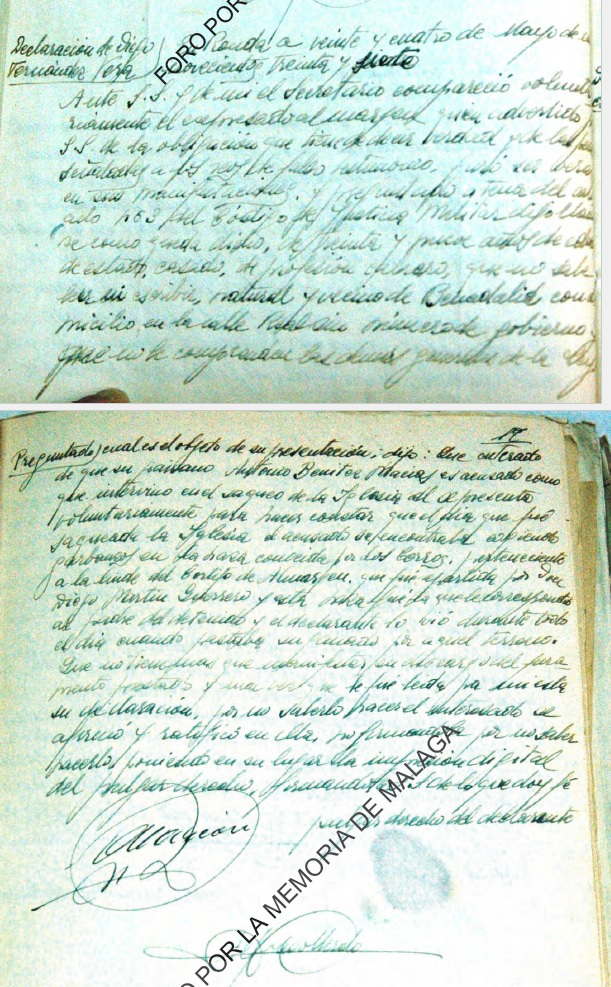 FORO POR
Declaración de Diego
Fernández Vera
Ronda a veinte y cuatro de Mayo de
novecientos treinta y siete
Ante S.S. y de mi el Secretario compareció volunta
riamente el expresado al margen quien advertido
S.S. de la obligación que tiene de decir verdad y de las
señaladas a los reos de falso testimonio, juró ser veraz
en sus manifestaciones, y preguntado a tenor del
453 del Código de Justicia Militar dijo llamar
se como queda dicho, de treinta y nueve años de edad
de estado, casado, de profesión cabrero, que no sabe
leer ni escribir, natural y vecino de Benadalid con
micilio en la calle número de gobierno y
que no le comprenden las demás generales de la Ley
17
Preguntado, cual es el objeto de su presentación; dijo: Que enterado
de que su paisano Antonio Benitez Macias es acusado como
que intervino en el saqueo de la Iglesia se presenta
voluntariamente para hacer constar que el dia que fué
saqueada la Iglesia el acusado se encontraba cojiendo
garbanzos en la haza conocida por los perteneciente
a la linde del Cortijo de Almargen, que fué repartida por Don
Diego Martin Guerrero y esta la que le correspondió
al del y el declarante lo vió durante todo
el dia cuando pastaba su ganado por aquel terreno.
Que no tiene mas que manifestar, en descargo del jura
mento prestado y una vez que le fué leida por mi esta
su declaración, por no saberlo hacer el interesado se
afirmó y ratificó en ella, no firmandola por no saber
hacerlo, poniendo en su lugar la impresión digital
del pulgar derecho, firmandola S.S. de lo que doy fé
pulgar derecho del declarante
O POR LA MEMORIA DE MALAGA